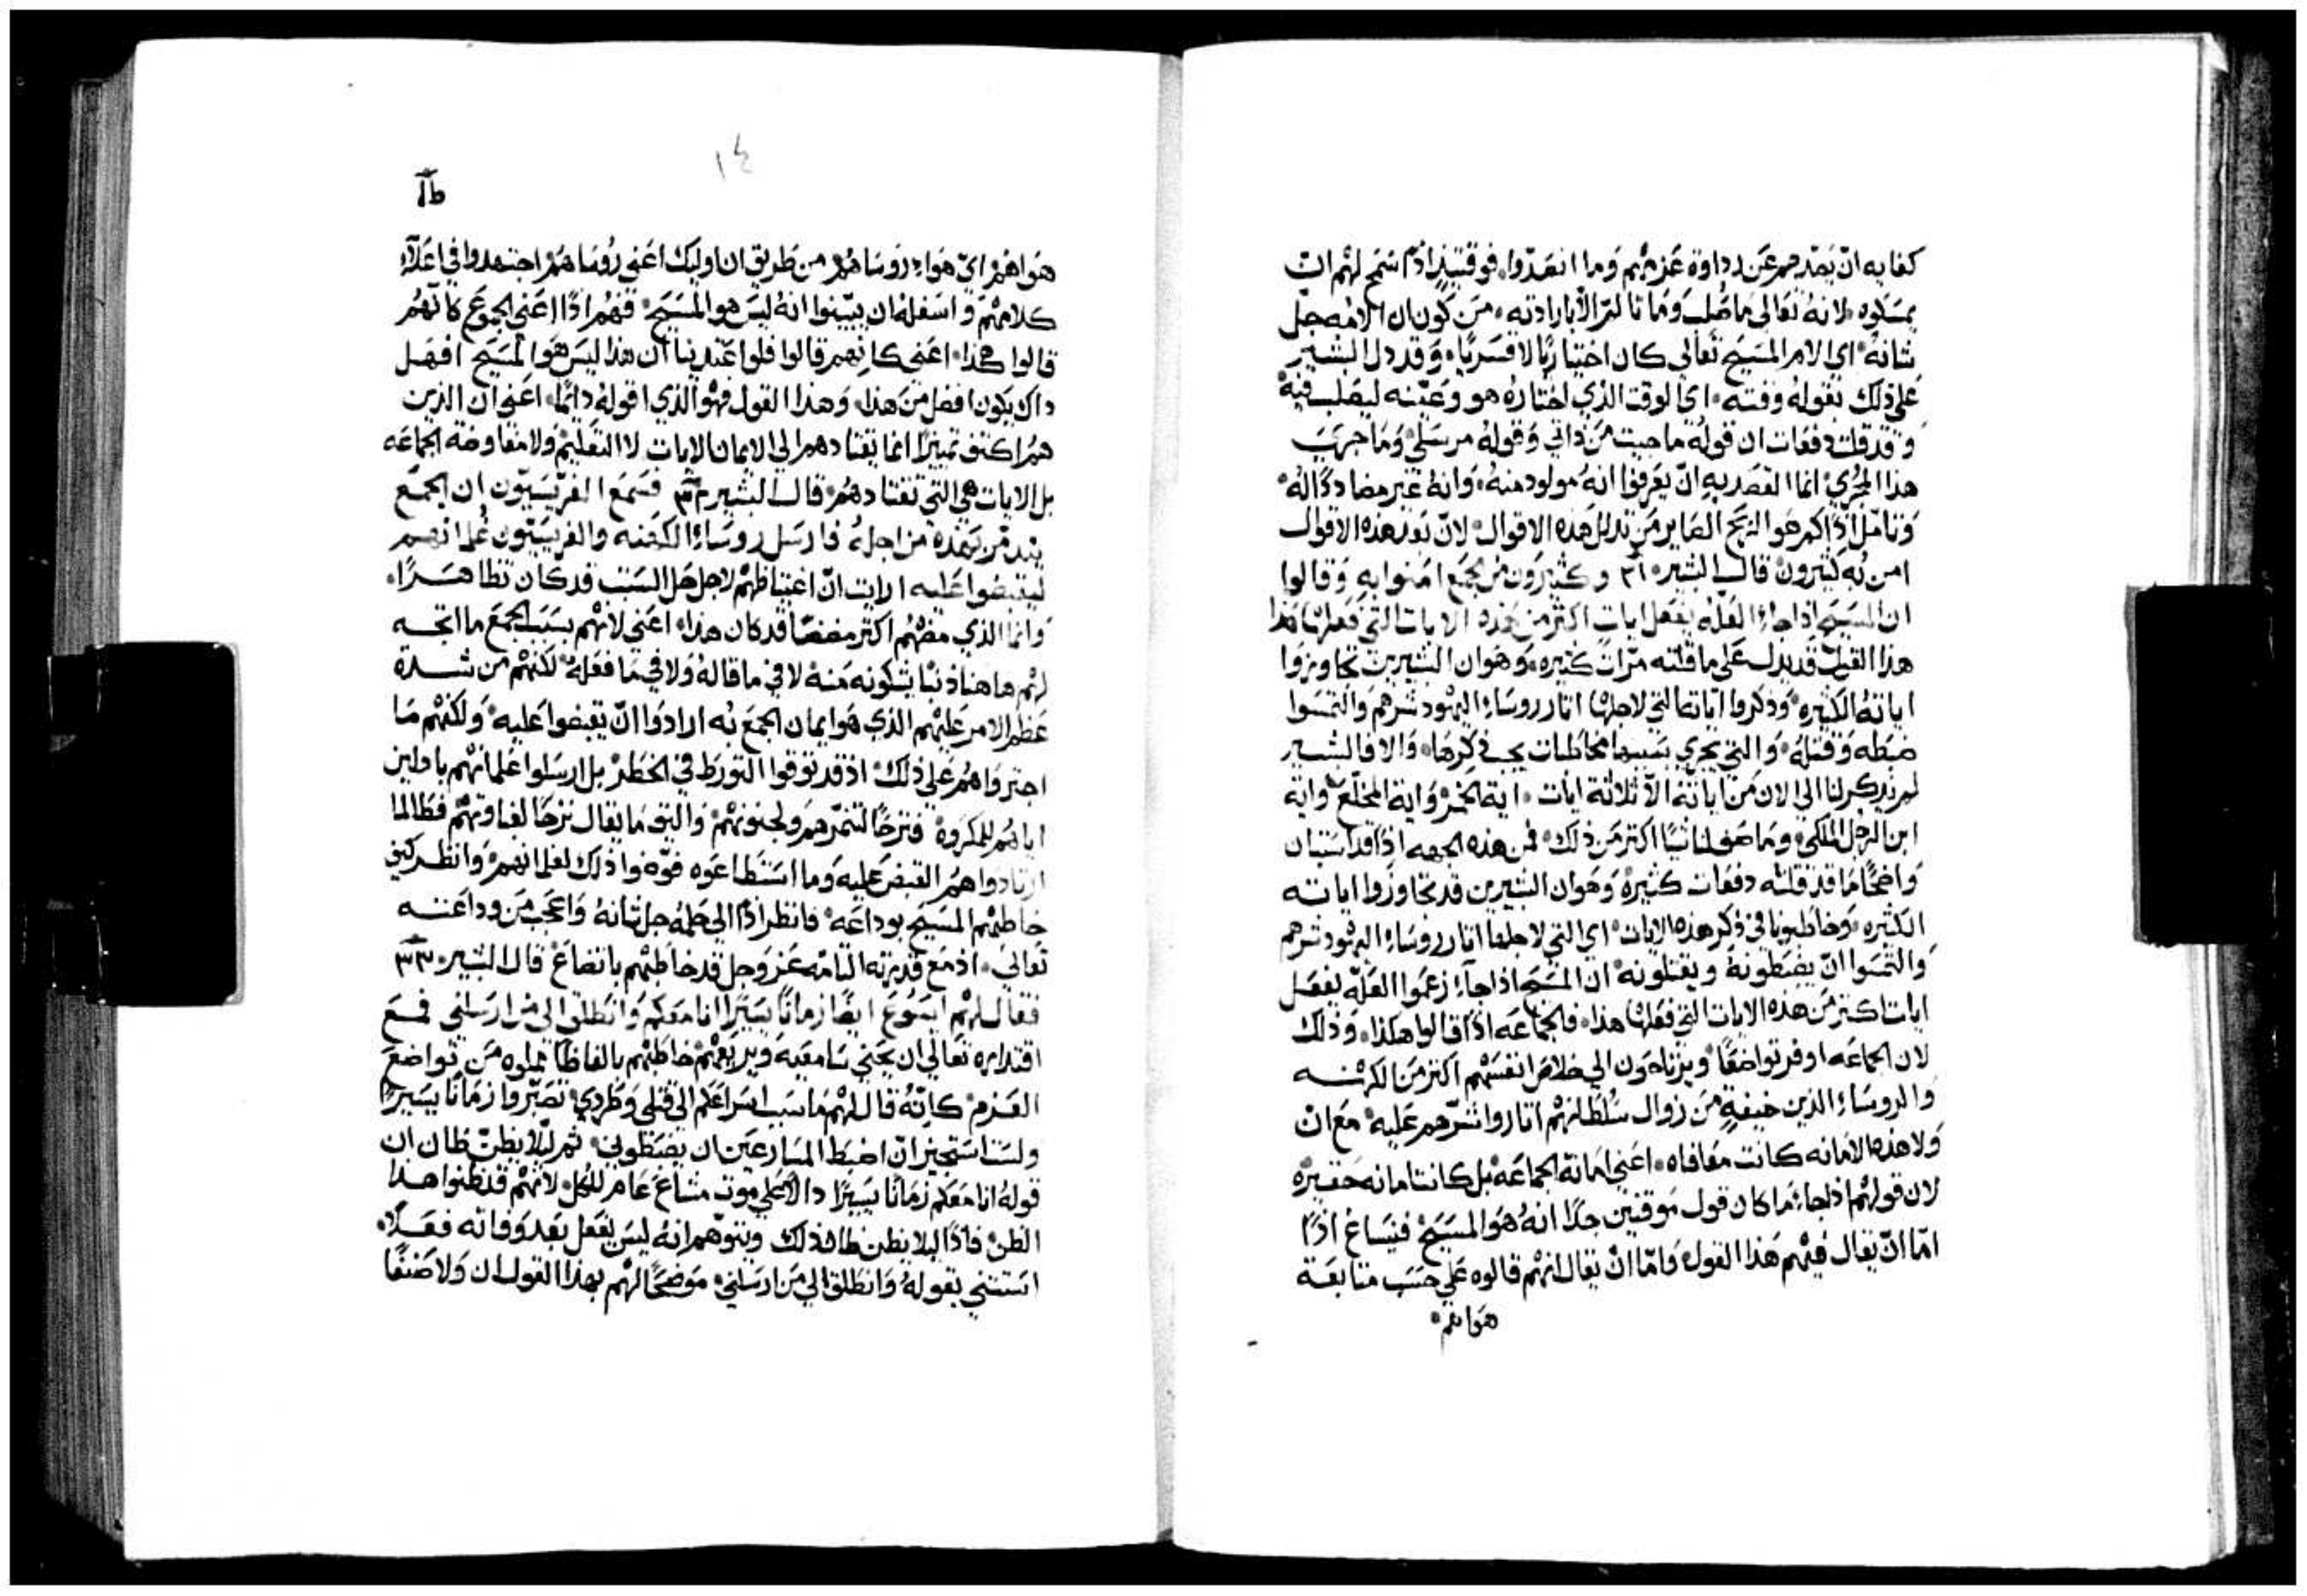 كفايه ان يصدهم عن رداوة عزمهم وما انصدوا. فوقتيذ اذا سمح لهم ان
يمسكوه. لانه تعالى ما صلب وما تالم الا بارادته. من كون ان الامه جل
شانه. اي الام المسيح تعالى كان اختياريًا لا قسريًا. وقد دل البشير
على ذلك بقوله وقته. اي الوقت الذي اختاره هو وعينه ليصلب فيه.
وقد قلت دفعات ان قوله ما جيت من ذاتي وقوله مرسلي وما جرى
هذا المجري انما القصد به ان يعرفوا انه مولود منه. وانه غير مضاددًا له.
وتامل اذًا كم هو الربح الصاير من تذلل هذه الاقوال. لان بعد هذه الاقوال
امن به كثيرون قال البشير. ٣١ وكثيرون من الجمع امنوا به وقالوا
ان المسيح اذا جاء العله يفعل ايات اكثر من هذه الايات التي فعلها هذا
هذا القيل قد يدل على ما قلته مرات كثيره. وهو ان البشيرين تجاوزوا
اياته الكثيره. وذكروا اياته التي لاجلها اثار روساء اليهود شرهم والتمسوا
ضبطه وقتله. والتي يجري بسببها مخاطبات يجب ذكرها. والا فالبشير
لم يذكر لنا الى الان من اياته الا ثلاثة ايات. اية الخمر واية المخلع واية
ابن الرجل الملكي. وما صنف لنا شيًا اكثر من ذلك. فمن هذه الجهه اذًا قد استبان
واضحًا ما قد قلته دفعات كثيرة. وهو ان البشيرين قد تجاوزوا اياته
الكثيره. وخاطبونا في ذكر هذه الايات. اي التي لاجلها اثار روساء اليهود شرهم
والتمسوا ان يضبطونه ويقتلونه. ان المسيح اذا جاء زعموا العله يفعل
ايات اكثر من هذه الايات التي فعلها هذا. فالجماعه اذًا قالوا هكذا. وذلك
لان الجماعه اوفر تواضعًا ويرتاحون الى خلاص انفسهم اكثر من الكهنه
والروساء الذين خيفة من زوال سلطانهم اثاروا شرهم عليه. مع ان
ولا هذه الامانه كانت معافاه. اعني امانة الجماعة. بل كانت امانه حقيره
لان قولهم اذا جاء. ما كان قول موقنين جدًا انه هو المسيح. فيساغ اذًا
اما ان يقال فيهم هذا القول. واما ان يقال انهم قالوه على حسب متابعة
هواهم.
١٤
هواهم اي هواء روساهم من طريق ان اوليك اعني روساهم اجتهدوا في اعلاء
كلامهم واسفله ان يبينوا انه ليس هو المسيح. فهم اذًا اعني الجموع كانهم
قالوا هكذا. اعني كانهم قالوا فلو اعتدينا ان هذا ليس هو المسيح افهل
داك يكون افضل من هذا. وهذا القول فهو الذي اقوله دايمًا. اعني ان الذين
هم اكثف تمييزًا انما يقتادهم الى الايمان الايات لا التعليم ولا مفاوضة الجماعه
بل الايات هي التي تقتادهم. قال البشير ٣٢ فسمع الفريسيون ان الجمع
يتدمر بهذه من اجله فارسل روساء الكهنه والفريسيون غلمانهم
ليقبضوا عليه ارايت ان اغتياظهم لاجل حل السبت قد كان تظاهرًا.
وانما الذي مضهم اكثر مضضًا قد كان هذا. اعني لانهم بسبب الجمع ما اتجه
لهم هاهنا ذنبا يشكونه منه لا في ما قاله ولا في ما فعله. لكنهم من شدة
عظم الامر عليهم الذي هو ايمان الجمع به ارادوا ان يقبضوا عليه. ولكنهم ما
اجتروا هم على ذلك. اذ قد توقوا التورط في الخطر. بل ارسلوا غلمانهم باذلين
اياهم للمكروه. فترحًا لتنمرهم ولجنونهم. واليق ما يقال ترحًا لغباوتهم فطالما
ارتادوا هم القبض عليه وما استطاعوه فوضوا ذلك لغلمانهم. وانظر كيف
خاطبهم المسيح بوداعه. فانظر اذًا الى حلمه جل شانه واعجب من وداعته
تعالى. اذ مع قدرته التامه عز وجل قد خاطبهم باتضاع. قال البشير. ٣٣
فقال لهم ايسوع ايضًا زمانًا يسيرًا انا معكم وانطلق الى من ارسلني فمع
اقتداره تعالى ان يحني سامعيه ويريعهم. خاطبهم بالفاظًا مملوه من تواضع
العزم. كانه قال لهم ما سبب اسراعكم الى قتلي وطردي. تصبروا زمانًا يسيرًا
ولست استجيز ان اضبط المسارعين ان يضبطوني. ثم ليلا يظن ظان ان
قوله انا معكم زمانًا يسيرًا دالًا على موت مشاع عام للكل. لانهم قد ظنوا هذا
الظن. فاذًا ليلا يظن ظان ذلك ويتوهم انه ليس يفعل بعد وفاته فعلًا.
استثنى بقوله وانطلق الى من ارسلني. موضحًا لهم بهذا القول ان ولا صنفًا